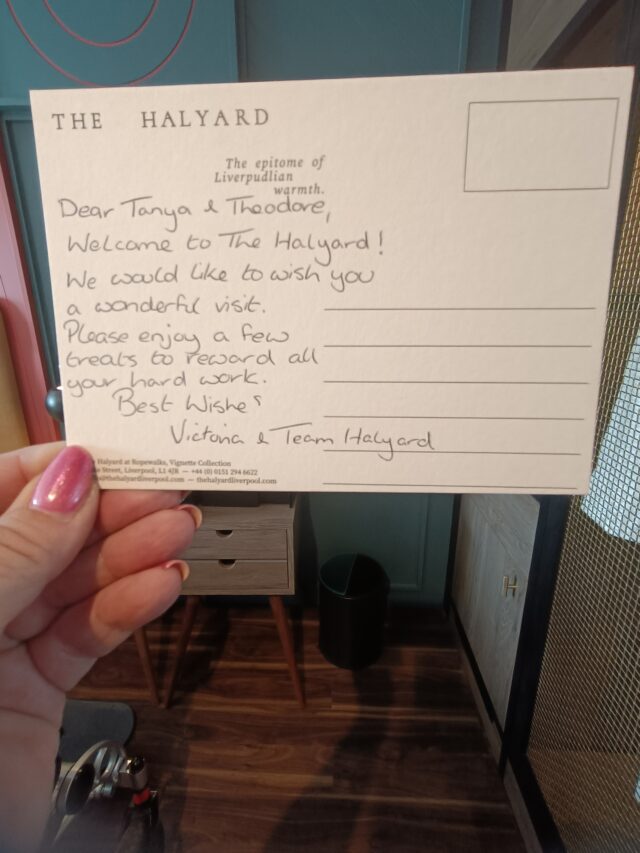 THE HALYARD
The epitome of
Liverpudlian
warmth.
Dear Tanya & Theodore,
Welcome to The Halyard!
We would like to wish you
a wonderful visit.
Please enjoy a few
treats to reward all
your hard work.
Best Wishes
Victoria & Team Halyard
Halyard at Ropewalks, Vignette Collection
Street, Liverpool, L1 4JR — +44 (0) 0151 294 6622
@thehalyardliverpool.com — thehalyardliverpool.com
H